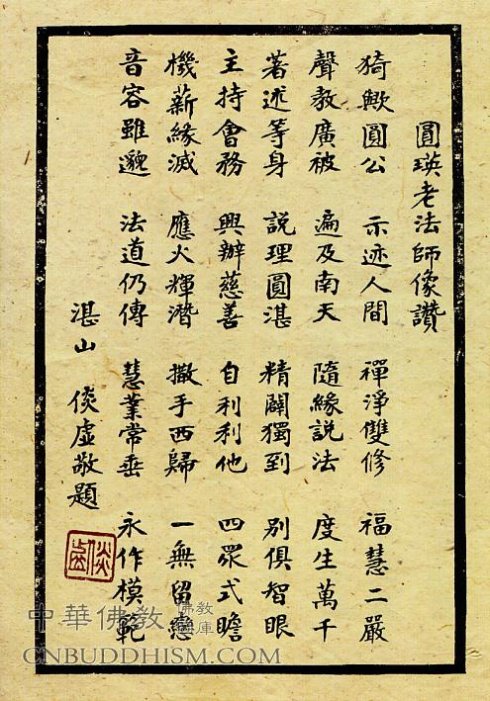 圓瑛老法師像讚
猗歟圓公 示迹人間 禪淨雙修 福慧二嚴
聲教廣被 遍及南天 隨緣說法 度生萬千
著述等身 說理圓湛 精闢獨到 別俱智眼
主持會務 興辦慈善 自利利他 四眾式瞻
機薪緣滅 應火輝潛 撒手西歸 一無留戀
音容雖邈 法道仍傳 慧業常垂 永作模範
湛山 倓虛敬題
倓虛
中華佛教
佛教
庫
CNBUDDHISM.COM